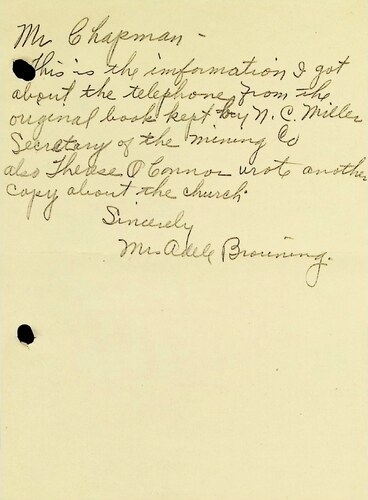 Mr Chapman -
This is the imformation I got
about the telephone from the
original book kept by N. C. Miller
Secretary of the mining Co
also Therese O'Connor wrote another
copy about the church.
Sincerely
Mrs Adele Browning.